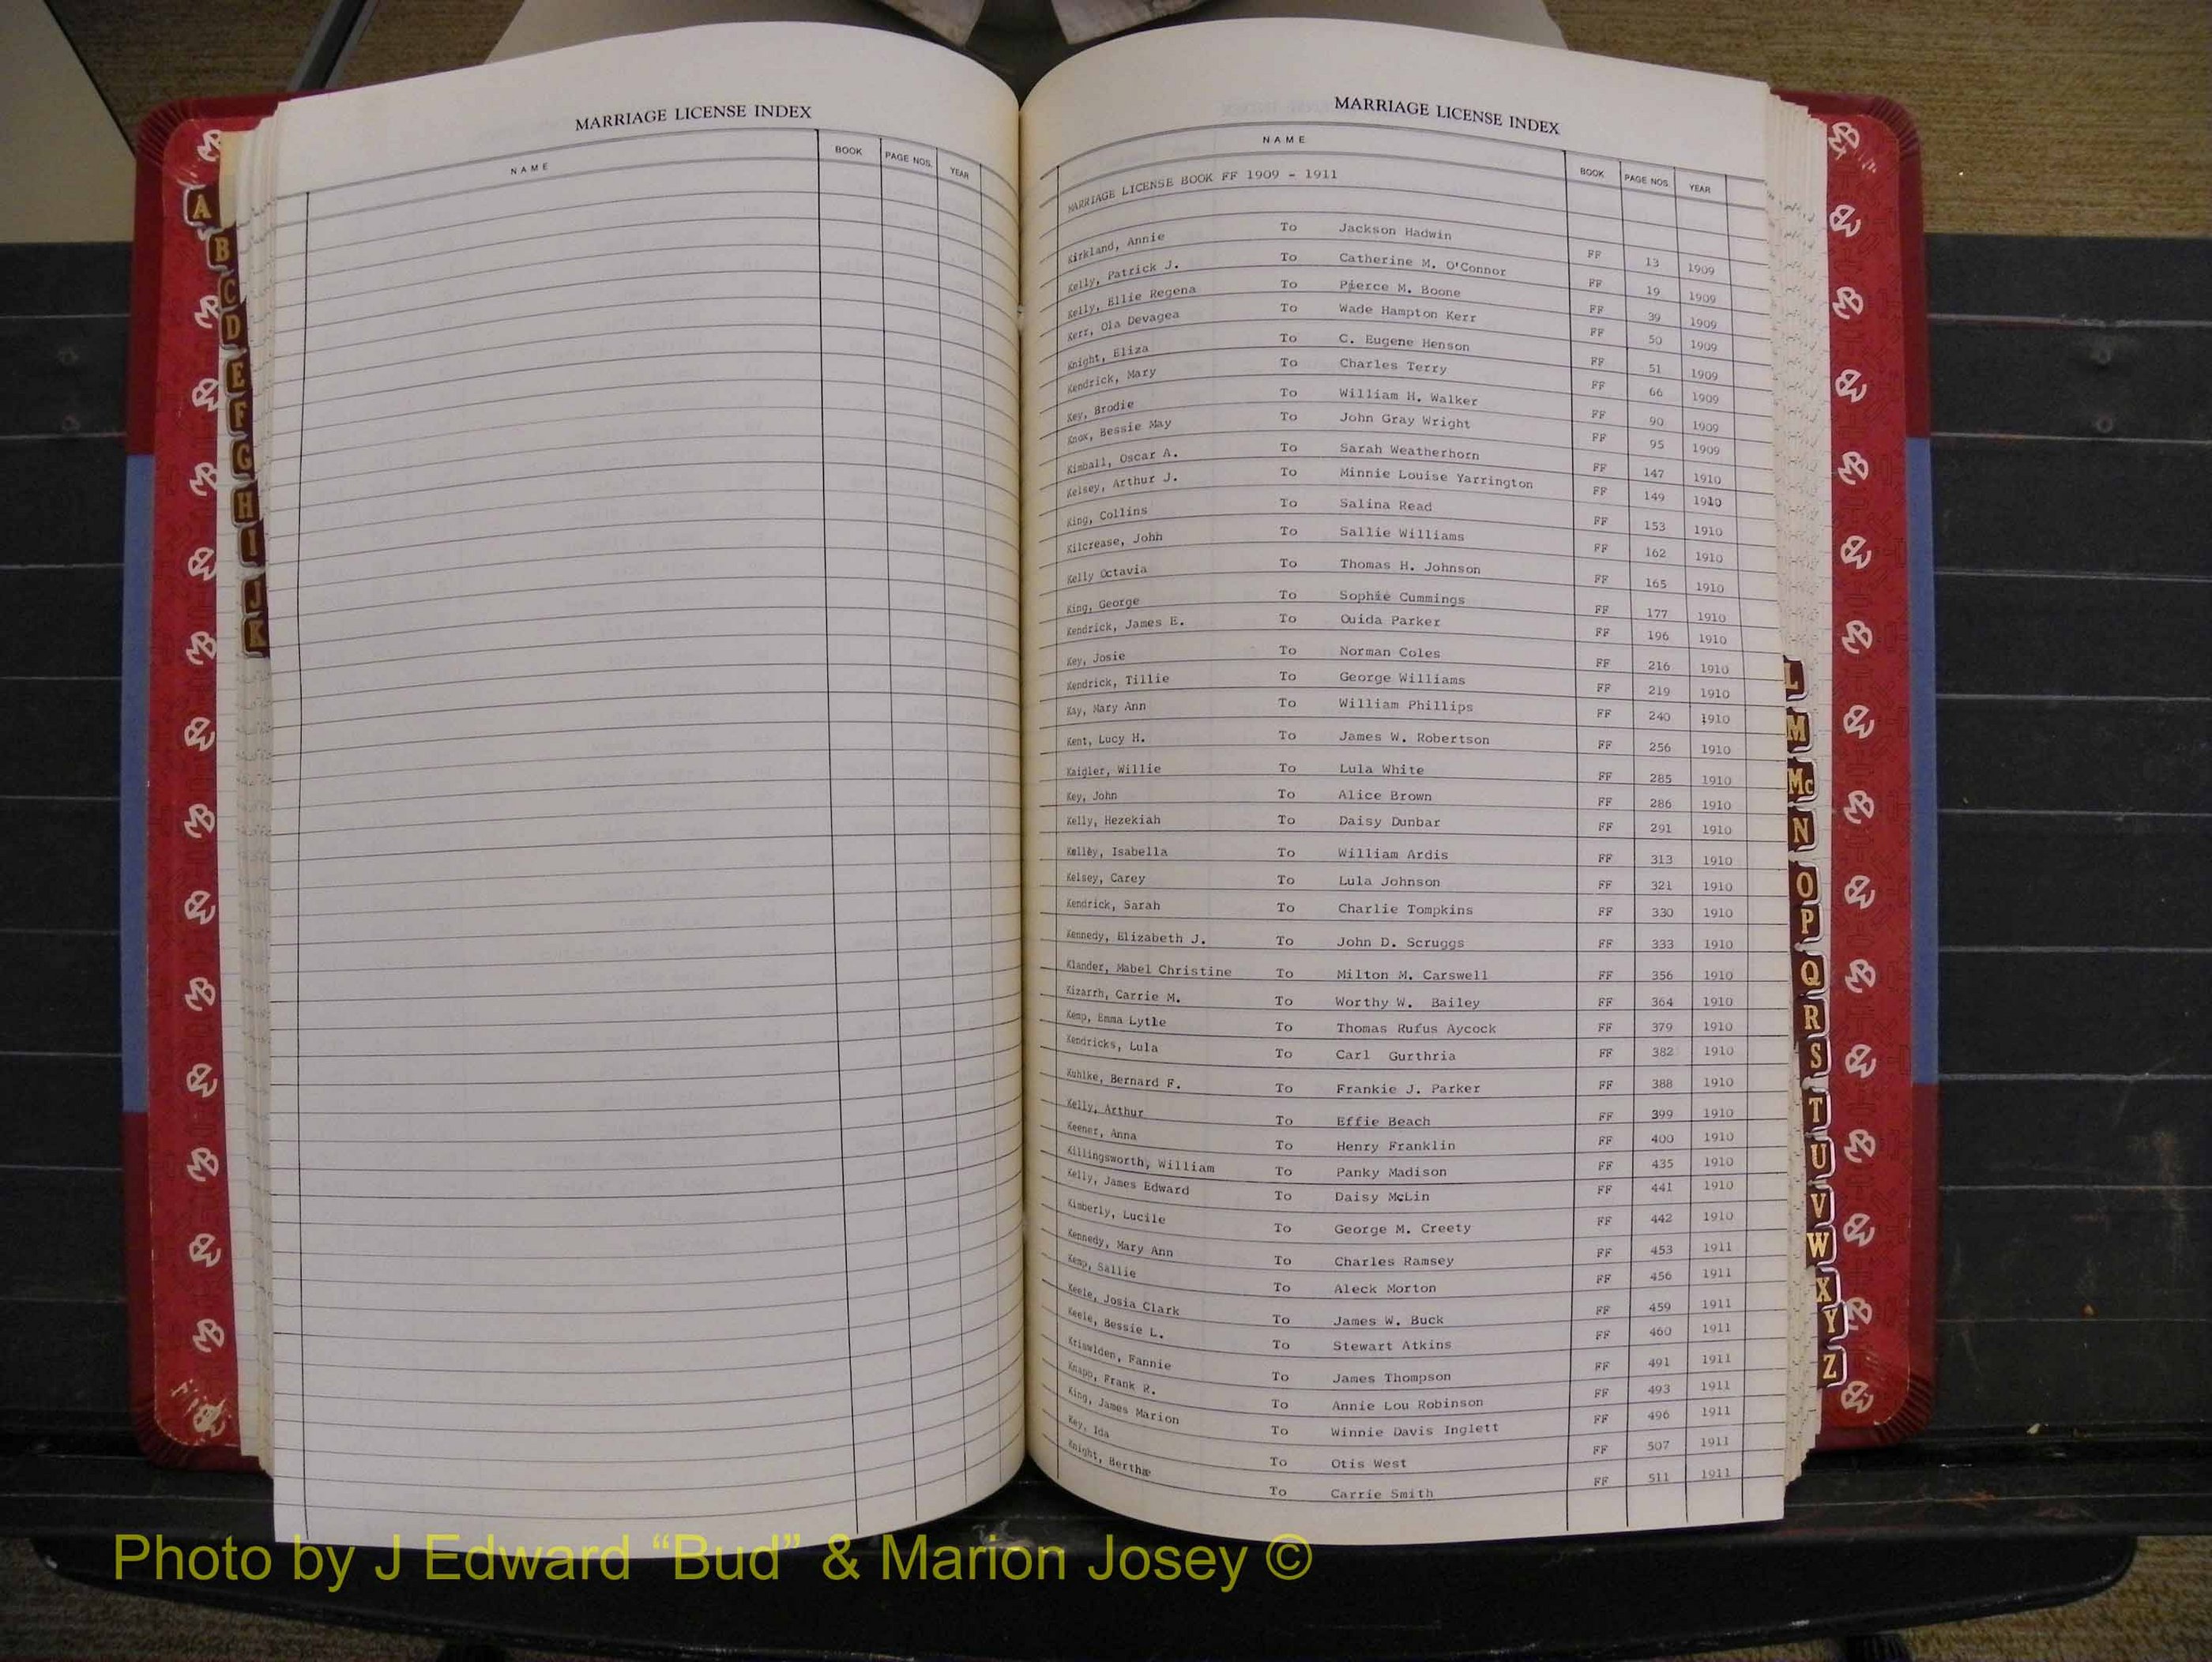 MARRIAGE LICENSE INDEX
NAME BOOK PAGE NOS. YEAR
A
B
C
D
E
F
G
H
I
J
K
MARRIAGE LICENSE INDEX
NAME BOOK PAGE NOS. YEAR
MARRIAGE LICENSE BOOK FF 1909 - 1911
Kirkland, Annie To Jackson Hadwin FF 13 1909
Kelly, Patrick J. To Catherine M. O'Connor FF 19 1909
Kelly, Ellie Regena To Pierce M. Boone FF 39 1909
Kerr, Ola Devagea To Wade Hampton Kerr FF 50 1909
Knight, Eliza To C. Eugene Henson FF 51 1909
Kendrick, Mary To Charles Terry FF 66 1909
Key, Brodie To William H. Walker FF 90 1909
Knox, Bessie May To John Gray Wright FF 95 1909
Kimball, Oscar A. To Sarah Weatherhorn FF 147 1910
Kelsey, Arthur J. To Minnie Louise Yarrington FF 149 1910
King, Collins To Salina Read FF 153 1910
Kilcrease, John To Sallie Williams FF 162 1910
Kelly Octavia To Thomas H. Johnson FF 165 1910
King, George To Sophie Cummings FF 177 1910
Kendrick, James E. To Ouida Parker FF 196 1910
Key, Josie To Norman Coles FF 216 1910
Kendrick, Tillie To George Williams FF 219 1910
Kay, Mary Ann To William Phillips FF 240 1910
Kent, Lucy H. To James W. Robertson FF 256 1910
Kaigler, Willie To Lula White FF 285 1910
Key, John To Alice Brown FF 286 1910
Kelly, Hezekiah To Daisy Dunbar FF 291 1910
Kelley, Isabella To William Ardis FF 313 1910
Kelsey, Carey To Lula Johnson FF 321 1910
Kendrick, Sarah To Charlie Tompkins FF 330 1910
Kennedy, Elizabeth J. To John D. Scruggs FF 333 1910
Klander, Mabel Christine To Milton M. Carswell FF 356 1910
Kizarrh, Carrie M. To Worthy W. Bailey FF 364 1910
Kemp, Emma Lytle To Thomas Rufus Aycock FF 379 1910
Kendricks, Lula To Carl Gurthria FF 382 1910
Kuhlke, Bernard F. To Frankie J. Parker FF 388 1910
Kelly, Arthur To Effie Beach FF 399 1910
Keener, Anna To Henry Franklin FF 400 1910
Killingsworth, William To Panky Madison FF 435 1910
Kelly, James Edward To Daisy McLin FF 441 1910
Kimberly, Lucile To George M. Creety FF 442 1910
Kennedy, Mary Ann To Charles Ramsey FF 453 1911
Kemp, Sallie To Aleck Morton FF 456 1911
Keele, Josia Clark To James W. Buck FF 459 1911
Keele, Bessie L. To Stewart Atkins FF 460 1911
Kriswlden, Fannie To James Thompson FF 491 1911
Knapp, Frank R. To Annie Lou Robinson FF 493 1911
King, James Marion To Winnie Davis Inglett FF 496 1911
Key, Ida To Otis West FF 507 1911
Knight, Bertha To Carrie Smith FF 511 1911
L
M
Mc
N
O
P
Q
R
S
T
U
V
W
X
Y
Z
Photo by J Edward “Bud” & Marion Josey ©